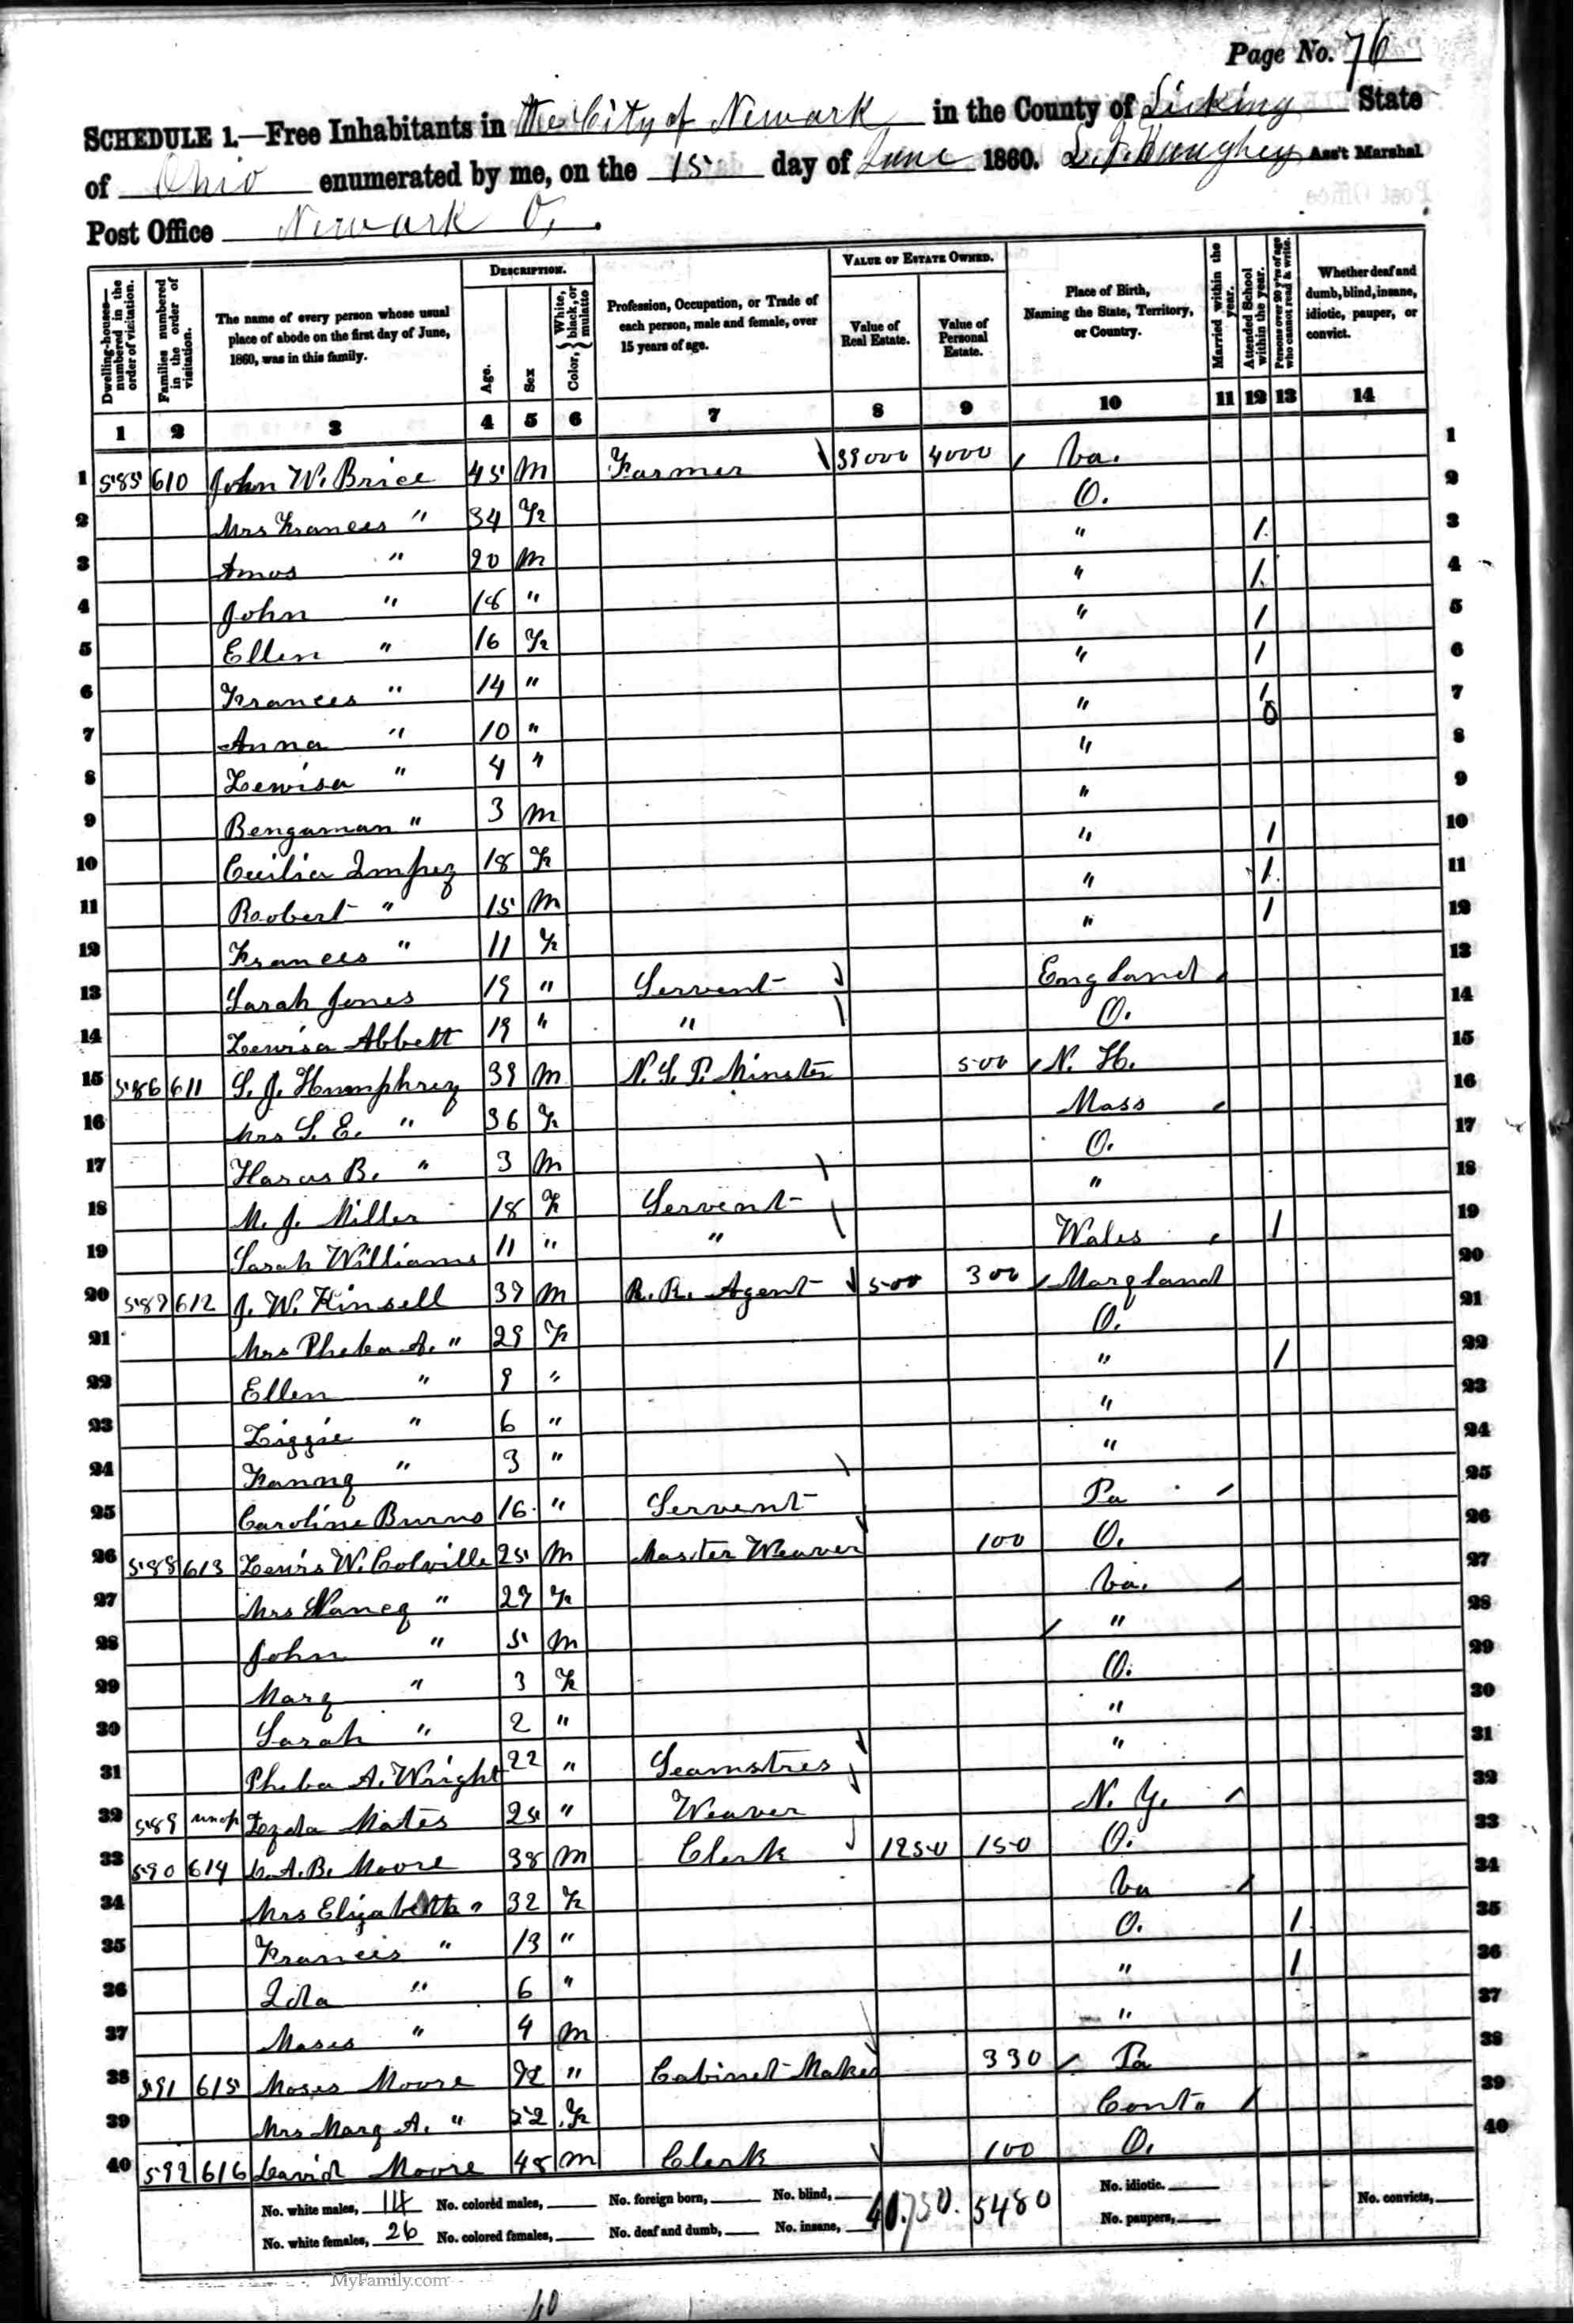 Page No. 76
SCHEDULE 1.—Free Inhabitants in the City of Newark in the County of Licking State
of Ohio enumerated by me, on the 15 day of June 1860. Ass't Marshal
Post Office Newark O.
Dwelling-houses—numbered in the order of visitation.
Families numbered in the order of visitation.
The name of every person whose usual place of abode on the first day of June, 1860, was in this family.
DESCRIPTION.
Age.
Sex
Color, { White, black, or mulatto
Profession, Occupation, or Trade of each person, male and female, over 15 years of age.
VALUE OF ESTATE OWNED.
Value of Real Estate.
Value of Personal Estate.
Place of Birth, Naming the State, Territory, or Country.
Married within the year.
Attended School within the year.
Persons over 20 y'rs of age who cannot read & write.
Whether deaf and dumb, blind, insane, idiotic, pauper, or convict.
1 2 3 4 5 6 7 8 9 10 11 12 13 14
1 585 610 John W. Brice 45 M Farmer 39000 4000 Va. 1
2 Mrs Frances " 34 F O. 2
3 Amos " 20 M " 1 3
4 John " 18 " " 1 4
5 Ellen " 16 F " 1 5
6 Frances " 14 " " 1 6
7 Anna " 10 " " 1 7
8 Lewisa " 4 " " 8
9 Bengaman " 3 M " 9
10 Cecilia 18 F " 1 10
11 Roobert " 15 M " 1 11
12 Frances " 11 F " 1 12
13 Sarah Jones 19 " Servent England 13
14 Lewisa Abbett 19 " " O. 14
15 586 611 S. J. Humphrey 39 M N. S. P. Minster 500 N. H. 15
16 Mrs S. E. " 36 F Mass 16
17 B. " 3 M O. 17
18 M. J. Miller 18 F Servent " 18
19 Sarah Williams 11 " " Wales 1 19
20 587 612 J. W. Kinsell 37 M R. R. Agent 500 300 Maryland 20
21 Mrs Pheba A. " 29 F O. 21
22 Ellen " 9 " " 1 22
23 Lizzie " 6 " " 23
24 Fanny " 3 " " 24
25 Caroline Burns 16 " Servent Pa 25
26 588 613 Lewis W. Colville 25 M Master Weaver 100 O. 26
27 Mrs Nancy " 27 F Va. 27
28 John " 5 M " 28
29 Mary " 3 F O. 29
30 Sarah " 2 " " 30
31 Pheba A. Wright 22 " Seamstres " 31
32 589 unop Mates 25 " Weaver N. Y. 32
33 590 614 A. B. Moore 38 M Clerk 1250 150 O. 33
34 Mrs Elizabeth " 32 F Va 34
35 Francis " 13 " O. 1 35
36 Ida " 6 " " 1 36
37 Moses " 4 M " 37
38 591 615 Moses Moore 72 " Cabinet Maker 330 Pa 38
39 Mrs Mary A. " 52 F Cont. 39
40 592 616 David Moore 48 M Clerk 100 O. 40
No. white males, 14 No. colored males, No. foreign born, No. blind, 40,750. 5480 No. idiotic. No. convicts,
No. white females, 26 No. colored females, No. deaf and dumb, No. insane, No. paupers,
MyFamily.com
40